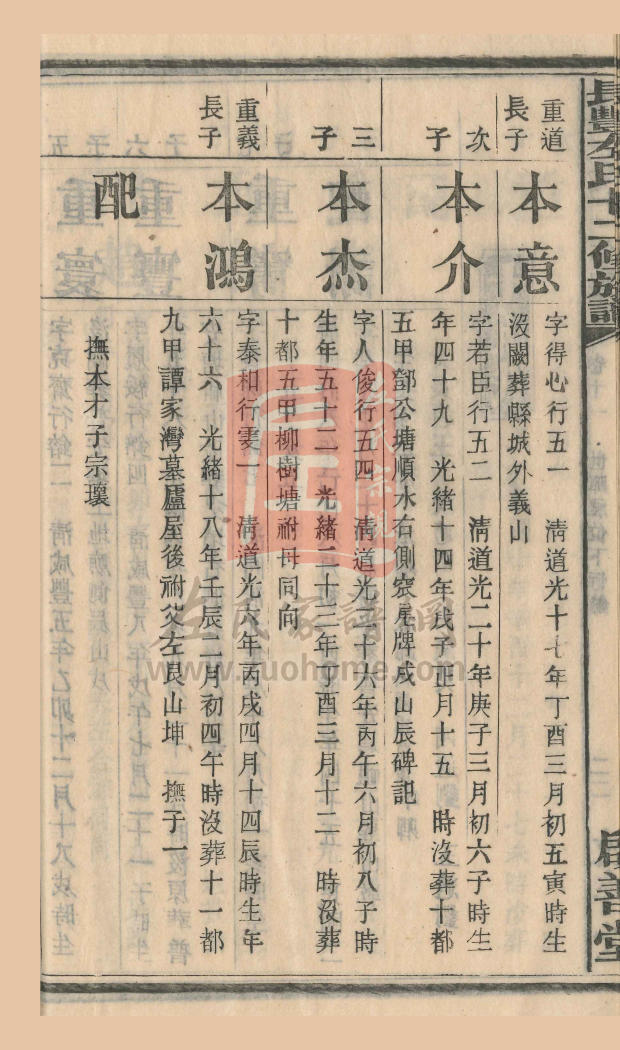 長豐左氏十二修族譜
重道長子
本意
字得心行五一 清道光十七年丁酉三月初五寅時生
沒闕葬縣城外義山
次子
本介
字若臣行五二 清道光二十年庚子三月初六子時生
年四十九 光緒十四年戊子正月十五 時沒葬十都
五甲鄧公塘順水右側窊尾牌戌山辰碑記
三子
本杰
字人俊行五四 清道光二十六年丙午六月初八子時
生年五十二 光緒二十三年丁酉三月十二 時沒葬
十都五甲柳樹塘祔母同向
重義長子
本鴻
字泰和行雯一 清道光六年丙戌四月十四辰時生年
六十六 光緒十八年壬辰二月初四午時沒葬十一都
九甲譚家灣墓廬屋後祔父左艮山坤 撫子一
配
撫本才子宗瓌
善堂
左氏家譜網
www.zuohome.com